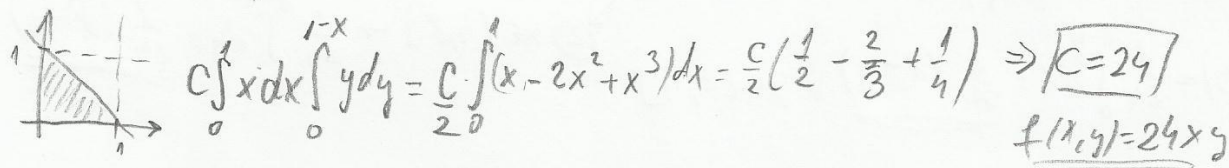 C∫₀¹ x dx ∫₀^{1-x} y dy = C/2 ∫₀¹ (x - 2x² + x³) dx = C/2 (1/2 - 2/3 + 1/4) ⇒ C = 24
f(x,y) = 24xy
1
1
1